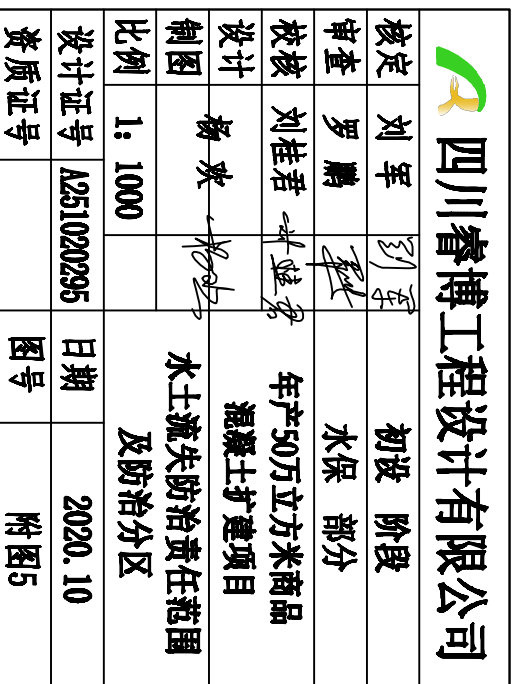 四川睿博工程设计有限公司
核定 刘军 刘军 初设 阶段
审查 罗鹏 水保 部分
校核 刘桂君 刘桂君 年产50万立方米商品
混凝土扩建项目
设计 杨欢
制图
水土流失防治责任范围
及防治分区
比例 1: 1000
设计证号 A251020295 日期 2020.10
资质证号 图号 附图5